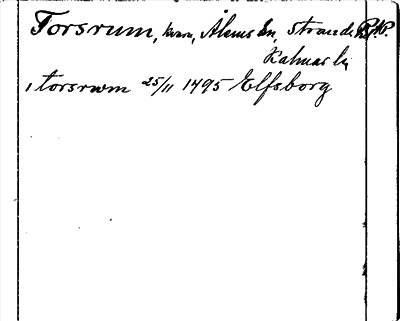 Torsrum, kvarn, Ålems sn, Stranda
Kalmar l.
i torsrwm 25/11 1495 Elfsborg